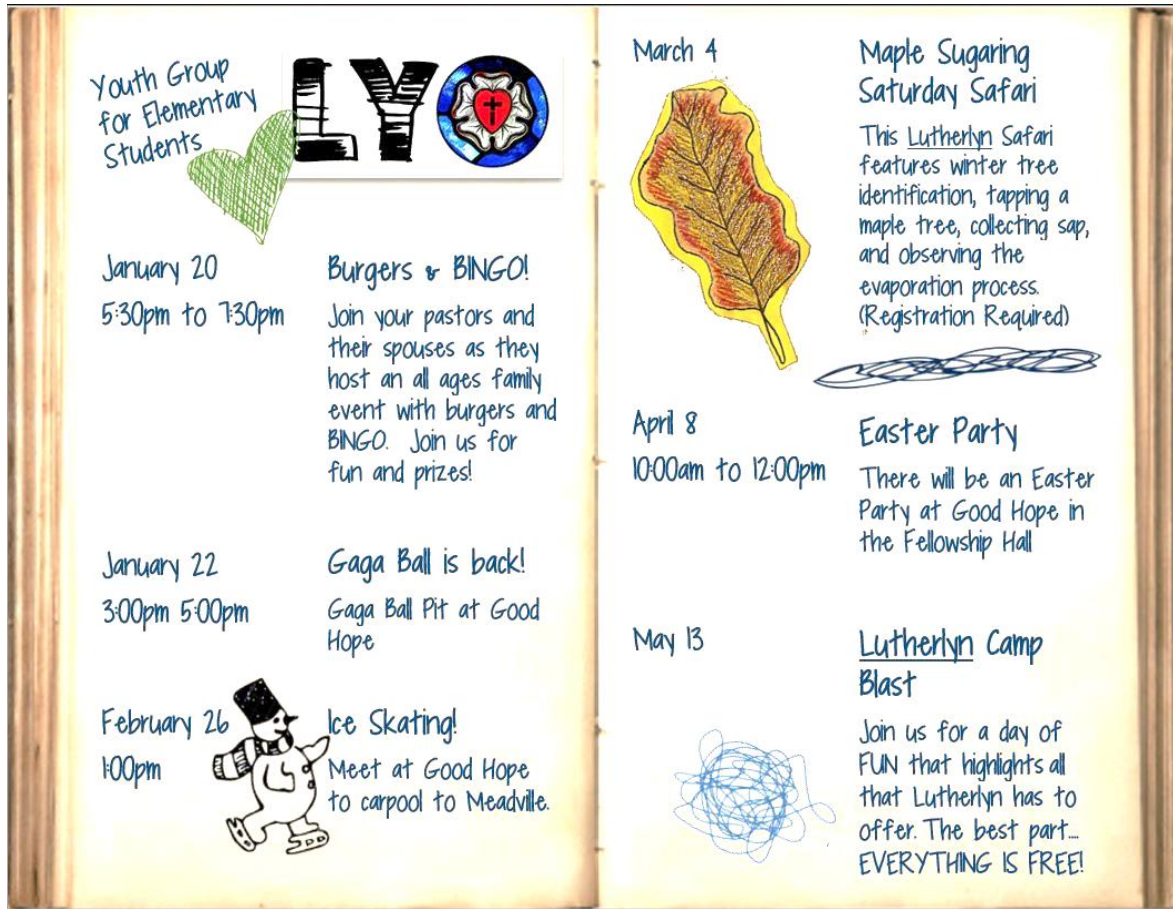 Youth Group
for Elementary
Students
LYO
January 20
5:30pm to 7:30pm
Burgers & BINGO!
Join your pastors and
their spouses as they
host an all ages family
event with burgers and
BINGO. Join us for
fun and prizes!
January 22
3:00pm 5:00pm
Gaga Ball is back!
Gaga Ball Pit at Good
Hope
February 26
1:00pm
Ice Skating!
Meet at Good Hope
to carpool to Meadville.
March 4
Maple Sugaring
Saturday Safari
This Lutherlyn Safari
features winter tree
identification, tapping a
maple tree, collecting sap,
and observing the
evaporation process.
(Registration Required)
April 8
10:00am to 12:00pm
Easter Party
There will be an Easter
Party at Good Hope in
the Fellowship Hall
May 13
Lutherlyn Camp
Blast
Join us for a day of
FUN that highlights all
that Lutherlyn has to
offer. The best part....
EVERYTHING IS FREE!